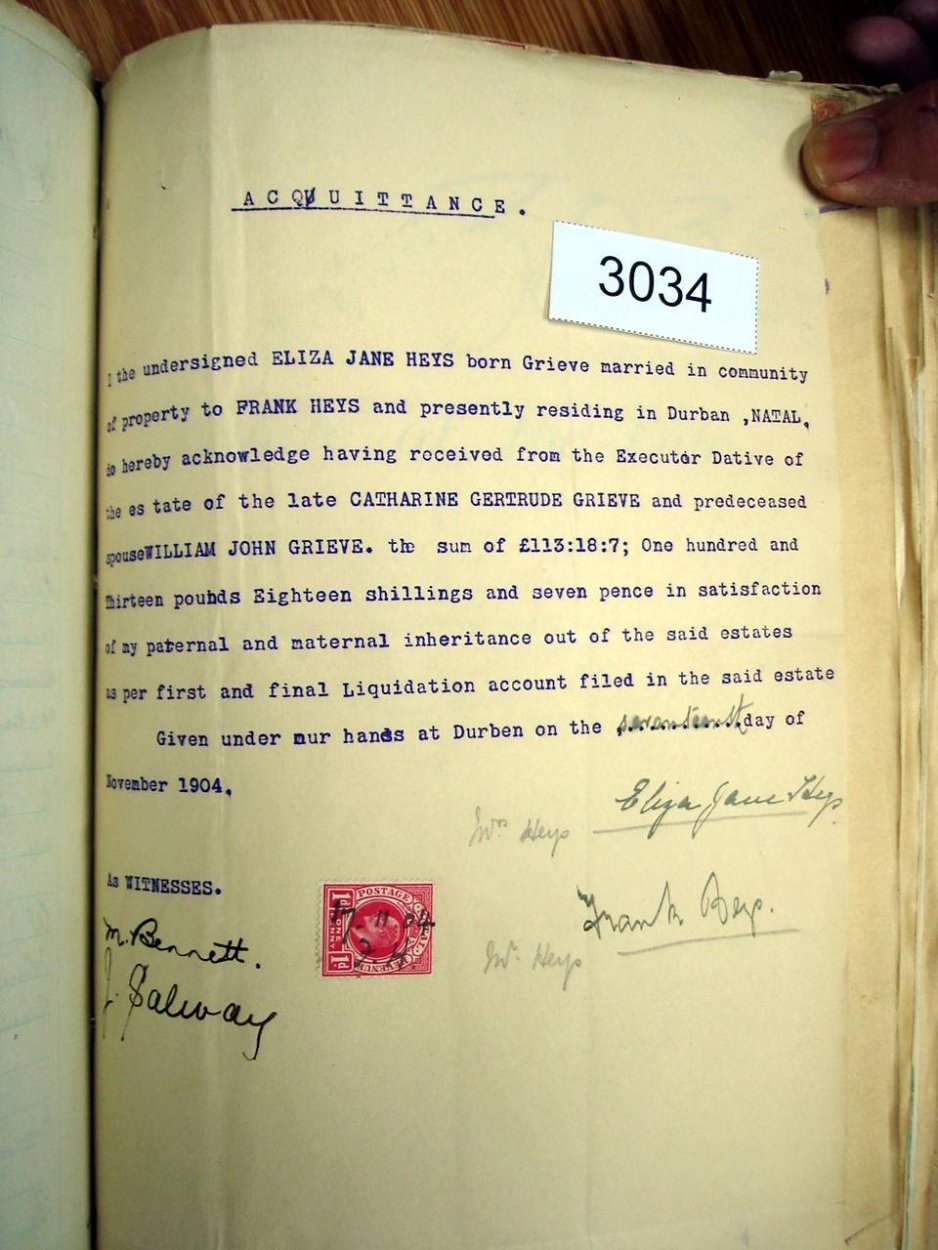 ACQUITTANCE.
3034
I the undersigned ELIZA JANE HEYS born Grieve married in community
of property to FRANK HEYS and presently residing in Durban ,NATAL,
do hereby acknowledge having received from the Executor Dative of
the es tate of the late CATHARINE GERTRUDE GRIEVE and predeceased
spouseWILLIAM JOHN GRIEVE. the sum of £113:18:7; One hundred and
Thirteen pounds Eighteen shillings and seven pence in satisfaction
of my paternal and maternal inheritance out of the said estates
as per first and final Liquidation account filed in the said estate
Given under our hands at Durben on the seventeenth day of
November 1904.
Eliza Jane Heys
Mrs Heys
As WITNESSES.
POSTAGE
NATAL
REVENUE
ONE PENNY
1d 1d
17 11 04
Frank Heys.
M. Bennett.
Mr. Heys
J. Salway